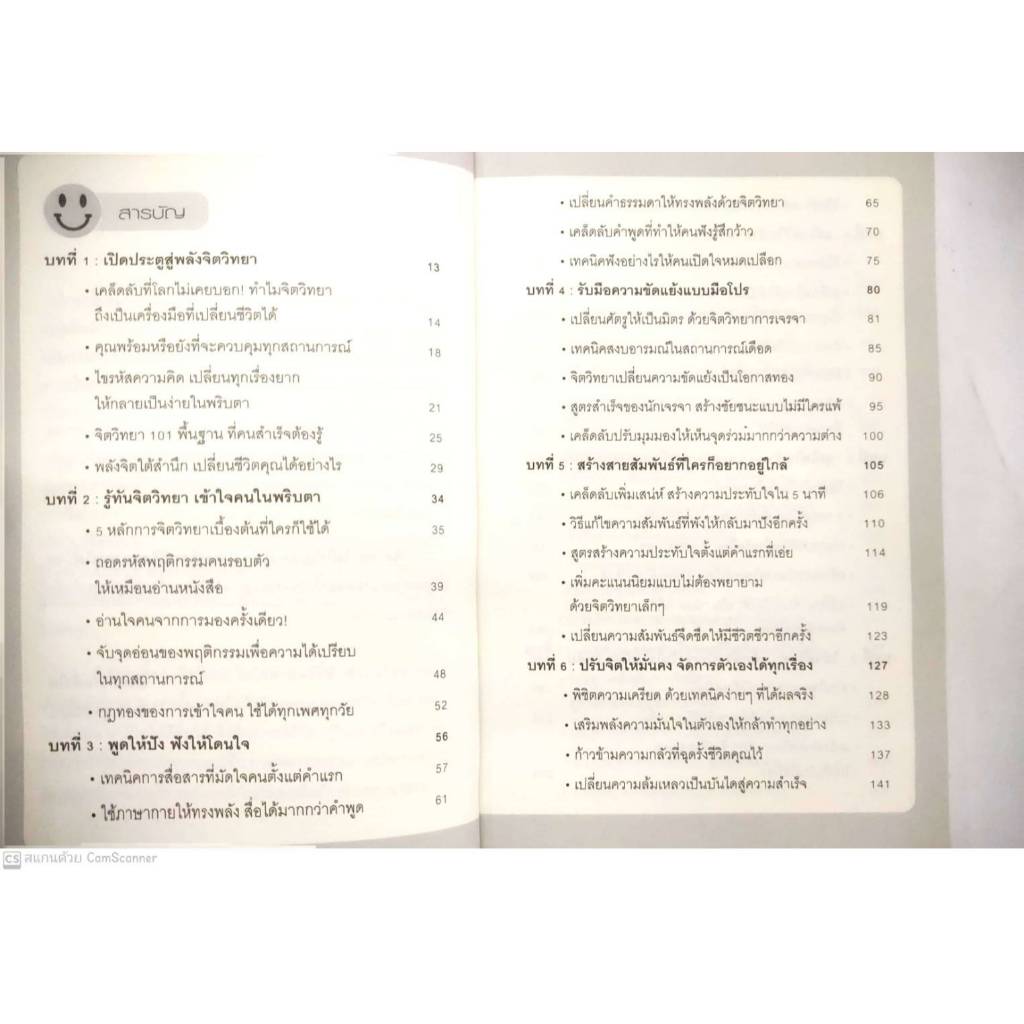 สารบัญ
บทที่ 1 : เปิดประตูสู่พลังจิตวิทยา 13
• เคล็ดลับที่โลกไม่เคยบอก! ทำไมจิตวิทยา
ถึงเป็นเครื่องมือที่เปลี่ยนชีวิตได้ 14
• คุณพร้อมหรือยังที่จะควบคุมทุกสถานการณ์ 18
• ไขรหัสความคิด เปลี่ยนทุกเรื่องยาก
ให้กลายเป็นง่ายในพริบตา 21
• จิตวิทยา 101 พื้นฐาน ที่คนสำเร็จต้องรู้ 25
• พลังจิตใต้สำนึก เปลี่ยนชีวิตคุณได้อย่างไร 29
บทที่ 2 : รู้ทันจิตวิทยา เข้าใจคนในพริบตา 34
• 5 หลักการจิตวิทยาเบื้องต้นที่ใครก็ใช้ได้ 35
• ถอดรหัสพฤติกรรมคนรอบตัว
ให้เหมือนอ่านหนังสือ 39
• อ่านใจคนจากการมองครั้งเดียว! 44
• จับจุดอ่อนของพฤติกรรมเพื่อความได้เปรียบ
ในทุกสถานการณ์ 48
• กฎทองของการเข้าใจคน ใช้ได้ทุกเพศทุกวัย 52
บทที่ 3 : พูดให้ปัง ฟังให้โดนใจ 56
• เทคนิคการสื่อสารที่มัดใจคนตั้งแต่คำแรก 57
• ใช้ภาษากายให้ทรงพลัง สื่อได้มากกว่าคำพูด 61
• เปลี่ยนคำธรรมดาให้ทรงพลังด้วยจิตวิทยา 65
• เคล็ดลับคำพูดที่ทำให้คนฟังรู้สึกว้าว 70
• เทคนิคฟังอย่างไรให้คนเปิดใจหมดเปลือก 75
บทที่ 4 : รับมือความขัดแย้งแบบมือโปร 80
• เปลี่ยนศัตรูให้เป็นมิตร ด้วยจิตวิทยาการเจรจา 81
• เทคนิคสงบอารมณ์ในสถานการณ์เดือด 85
• จิตวิทยาเปลี่ยนความขัดแย้งเป็นโอกาสทอง 90
• สูตรสำเร็จของนักเจรจา สร้างชัยชนะแบบไม่มีใครแพ้ 95
• เคล็ดลับปรับมุมมองให้เห็นจุดร่วมมากกว่าความต่าง 100
บทที่ 5 : สร้างสายสัมพันธ์ที่ใครก็อยากอยู่ใกล้ 105
• เคล็ดลับเพิ่มเสน่ห์ สร้างความประทับใจใน 5 นาที 106
• วิธีแก้ไขความสัมพันธ์ที่พังให้กลับมาปังอีกครั้ง 110
• สูตรสร้างความประทับใจตั้งแต่คำแรกที่เอ่ย 114
• เพิ่มคะแนนนิยมแบบไม่ต้องพยายาม
ด้วยจิตวิทยาเล็กๆ 119
• เปลี่ยนความสัมพันธ์จืดชืดให้มีชีวิตชีวาอีกครั้ง 123
บทที่ 6 : ปรับจิตให้มั่นคง จัดการตัวเองได้ทุกเรื่อง 127
• พิชิตความเครียด ด้วยเทคนิคง่ายๆ ที่ได้ผลจริง 128
• เสริมพลังความมั่นใจในตัวเองให้กล้าทำทุกอย่าง 133
• ก้าวข้ามความกลัวที่ฉุดรั้งชีวิตคุณไว้ 137
• เปลี่ยนความล้มเหลวเป็นบันไดสู่ความสำเร็จ 141
CS สแกนด้วย CamScanner